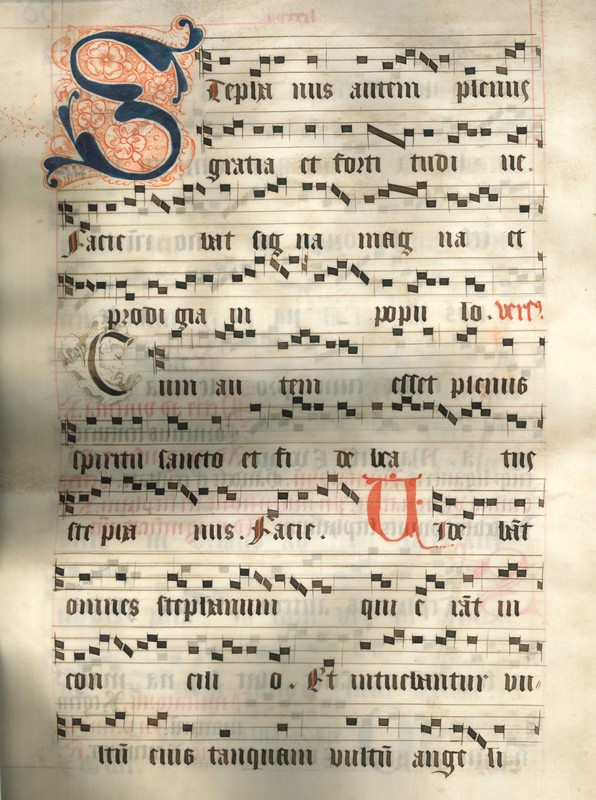 STepha nus autem plenus
gratia et forti tudi ne.
Facie bat sig na mag na et
prodi gia in popu lo. vers9.
Cum au tem esset plenus
spiritu sancto et fi de bea tus
ste pha nus. Facie. Uide bāt
omnes stephanum qui e rāt in
con cili o. Et intuebantur vu-
ltū eius tanquam vultū ange li